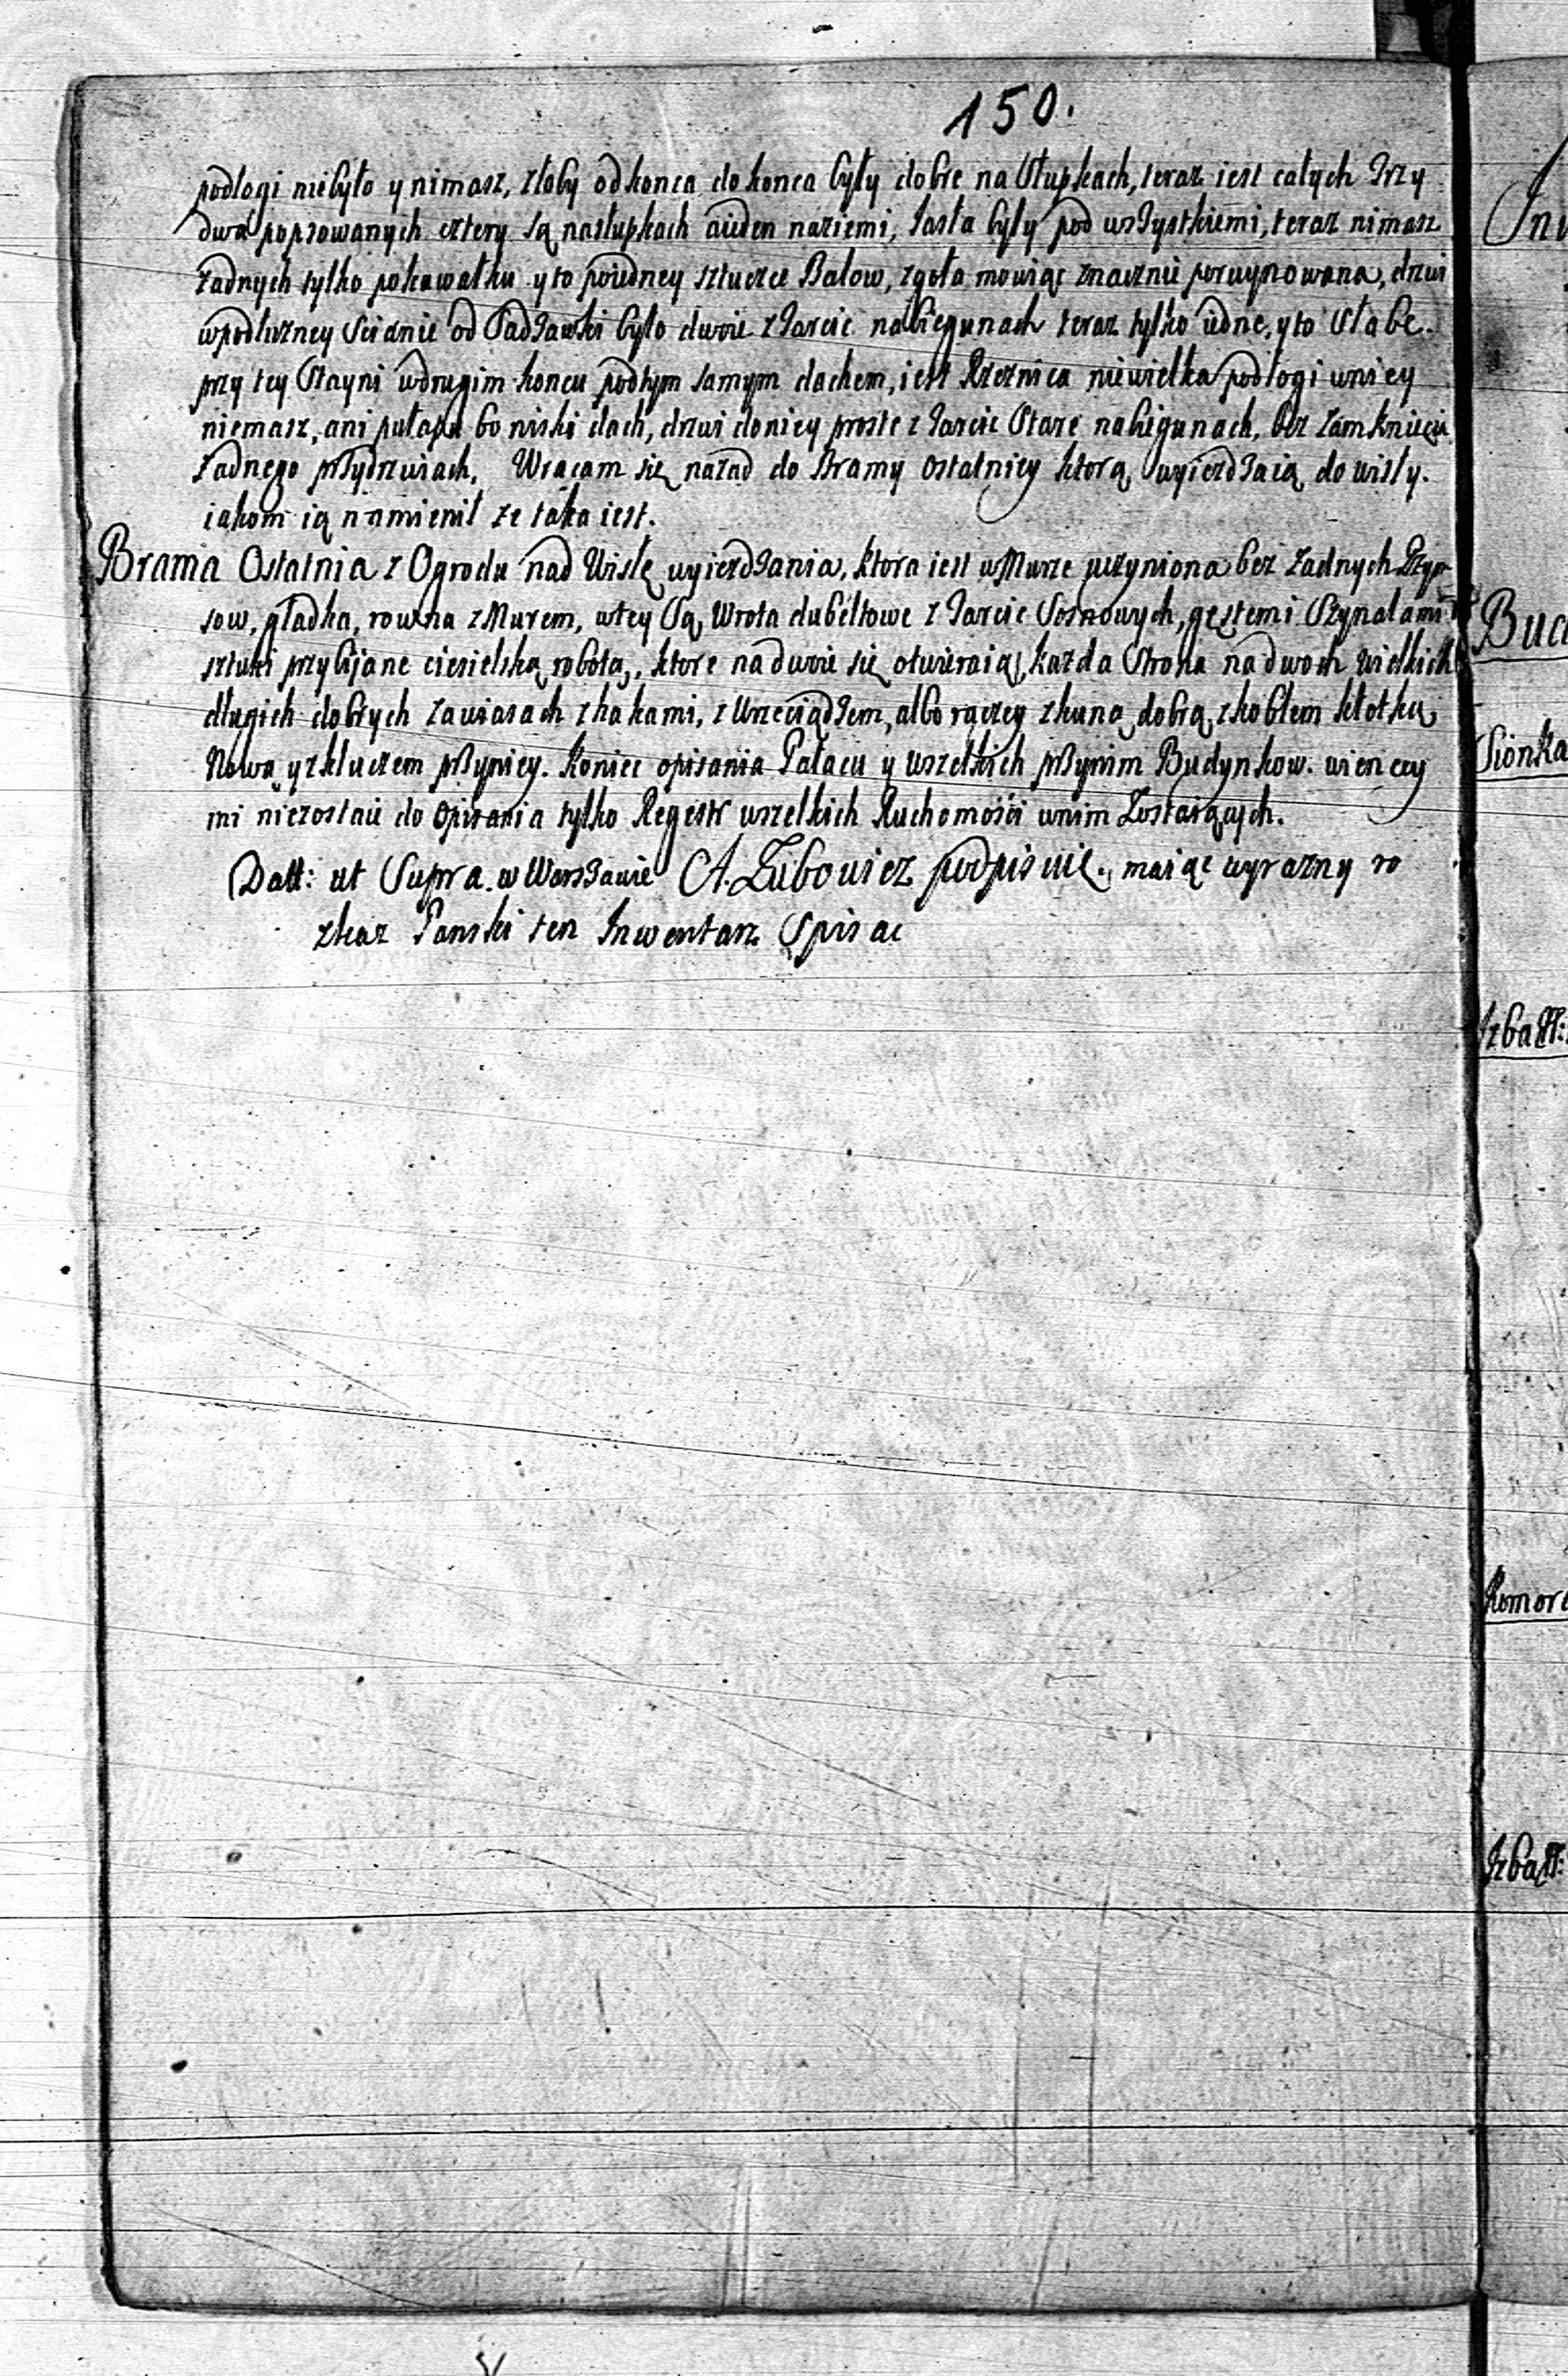 150.
podłogi niebyło y nimasz, żłoby od konca do konca były dobre na Słupkach, teraz iest całych Trzy
dwa popsowanych cztery są nasłupkach aieden naziemi, Jasła były pod wszystkiemi, teraz nimasz
żadnych tylko pokawałku y to poiedney sztuczce Balow, zgoła mowiąc znacznie poruynowana, drzwi
wpodłużney Scianie od Sadzawki było dwoie z Tarcic nabiegunach teraz tylko iedne, y to Słabe.
przy tey Stayni wdrugim koncu podtym samym dachem, iest Rzeznica niewielka podłogi wniey
niemasz, ani pułapu bo niski dach, drzwi doniey proste z Tarcic Stare nabiegunach, bez zamkniecia
żadnego przydrzwiach. Wracam się nazad do Bramy Ostatniey ktorą wyiezdzaią do wisły.
iakom ią namienił ze taka iest.
Brama Ostatnia z Ogrodu nad Wisłę wyiezdzania, ktora iest w Murze uczyniona bez żadnych
sow, gładka, rowna z Murem, wtey Są Wrota dubeltowe z Tarcic Sosnowych, gęstemi Sżynalami
sztuki przybijane ciesielską robotą, ktore nadwoie się otwieraią, każda Strona na dwoch wielkich
długich dobrych zawiasach zhakami, z Wrzeciądzem, albo raczey zkuną dobrą, zkoblem kłotką
Nową y zkluczem przyniey. Koniec opisania Pałacu y wszelkich przynim Budynkow. wiencey
mi niezostaie do Opisania tylko Regestr wszelkich Ruchomości wnim Zostaiących.
Datt: ut Supra. w Warszawie A. Zubowicz podpis maiąc wyrazny ro
zkaz Panski ten Inwentarz Spisac
Bud
Sionka
Izba
Komor
Izba